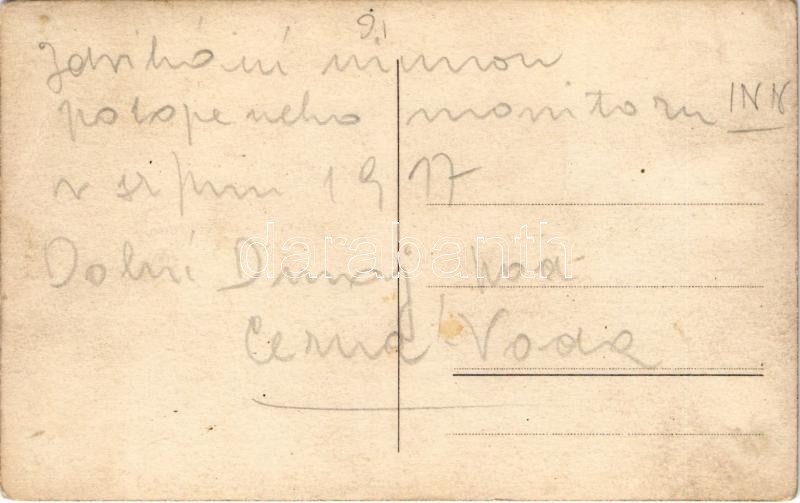 91
Zdvihání minou
potopeného monitoru INN
v srpnu 1917
Dolní Dunaj nad
Černá Voda
darabanth